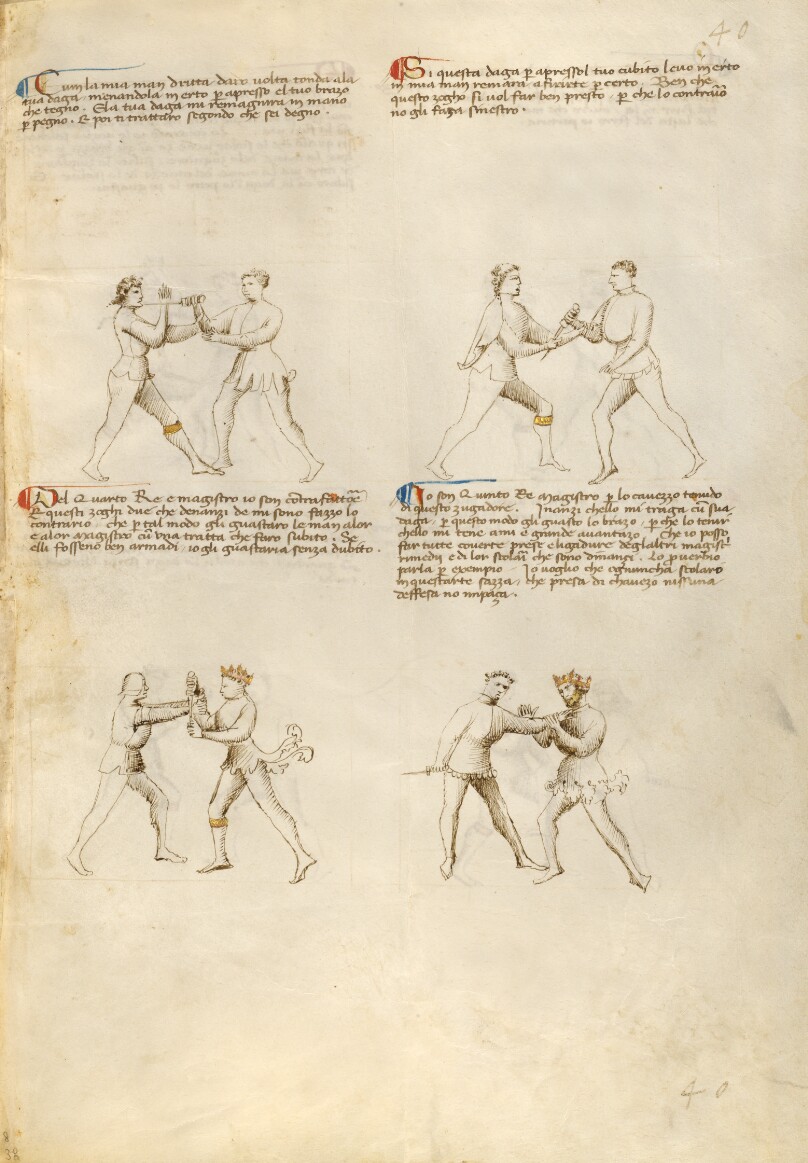 40
Cum la mia man dritta daro volta tonda ala
tua daga menandola in erto p apresso el tuo brazo
che tegno. E la tua daga mi remagnira in mano
p pegno. E poi ti trattaro segondo che sei degno.
Si questa daga p apressol tuo cubito levo in erto
in mia man remara a firirte p certo. Ben che
questo zogho si vol far ben presto p che lo contrario
no gli faza sinestro.
Del Quarto Re e magistro io son contrafattore
E questi zoghi due che denanzi de mi sono fazzo lo
contrario che p tal modo gli guastaro le man a lor
e a lor magistro cum una tratta che faro subito. Se
elli fosseno ben armadi, io gli guastaria senza dubito.
Io son Quinto Re magistro p lo cavezzo tenudo
di questo zugadore. Inanzi chello mi traga cum sua
daga p questo modo gli guasto lo brazo, p che lo tenir
chello mi tene a mi e grande avantazo. Che io posso
far tutte coverte prese e ligadure deglaltri magistri
rimedii e di lor scolari che sono dinanci. Lo proverbio
parla p exempio. Io voglio che ognuncha scolaro
in quest arte sazza, che presa di chavezo nissuna
deffesa no impaza.
40
8
38